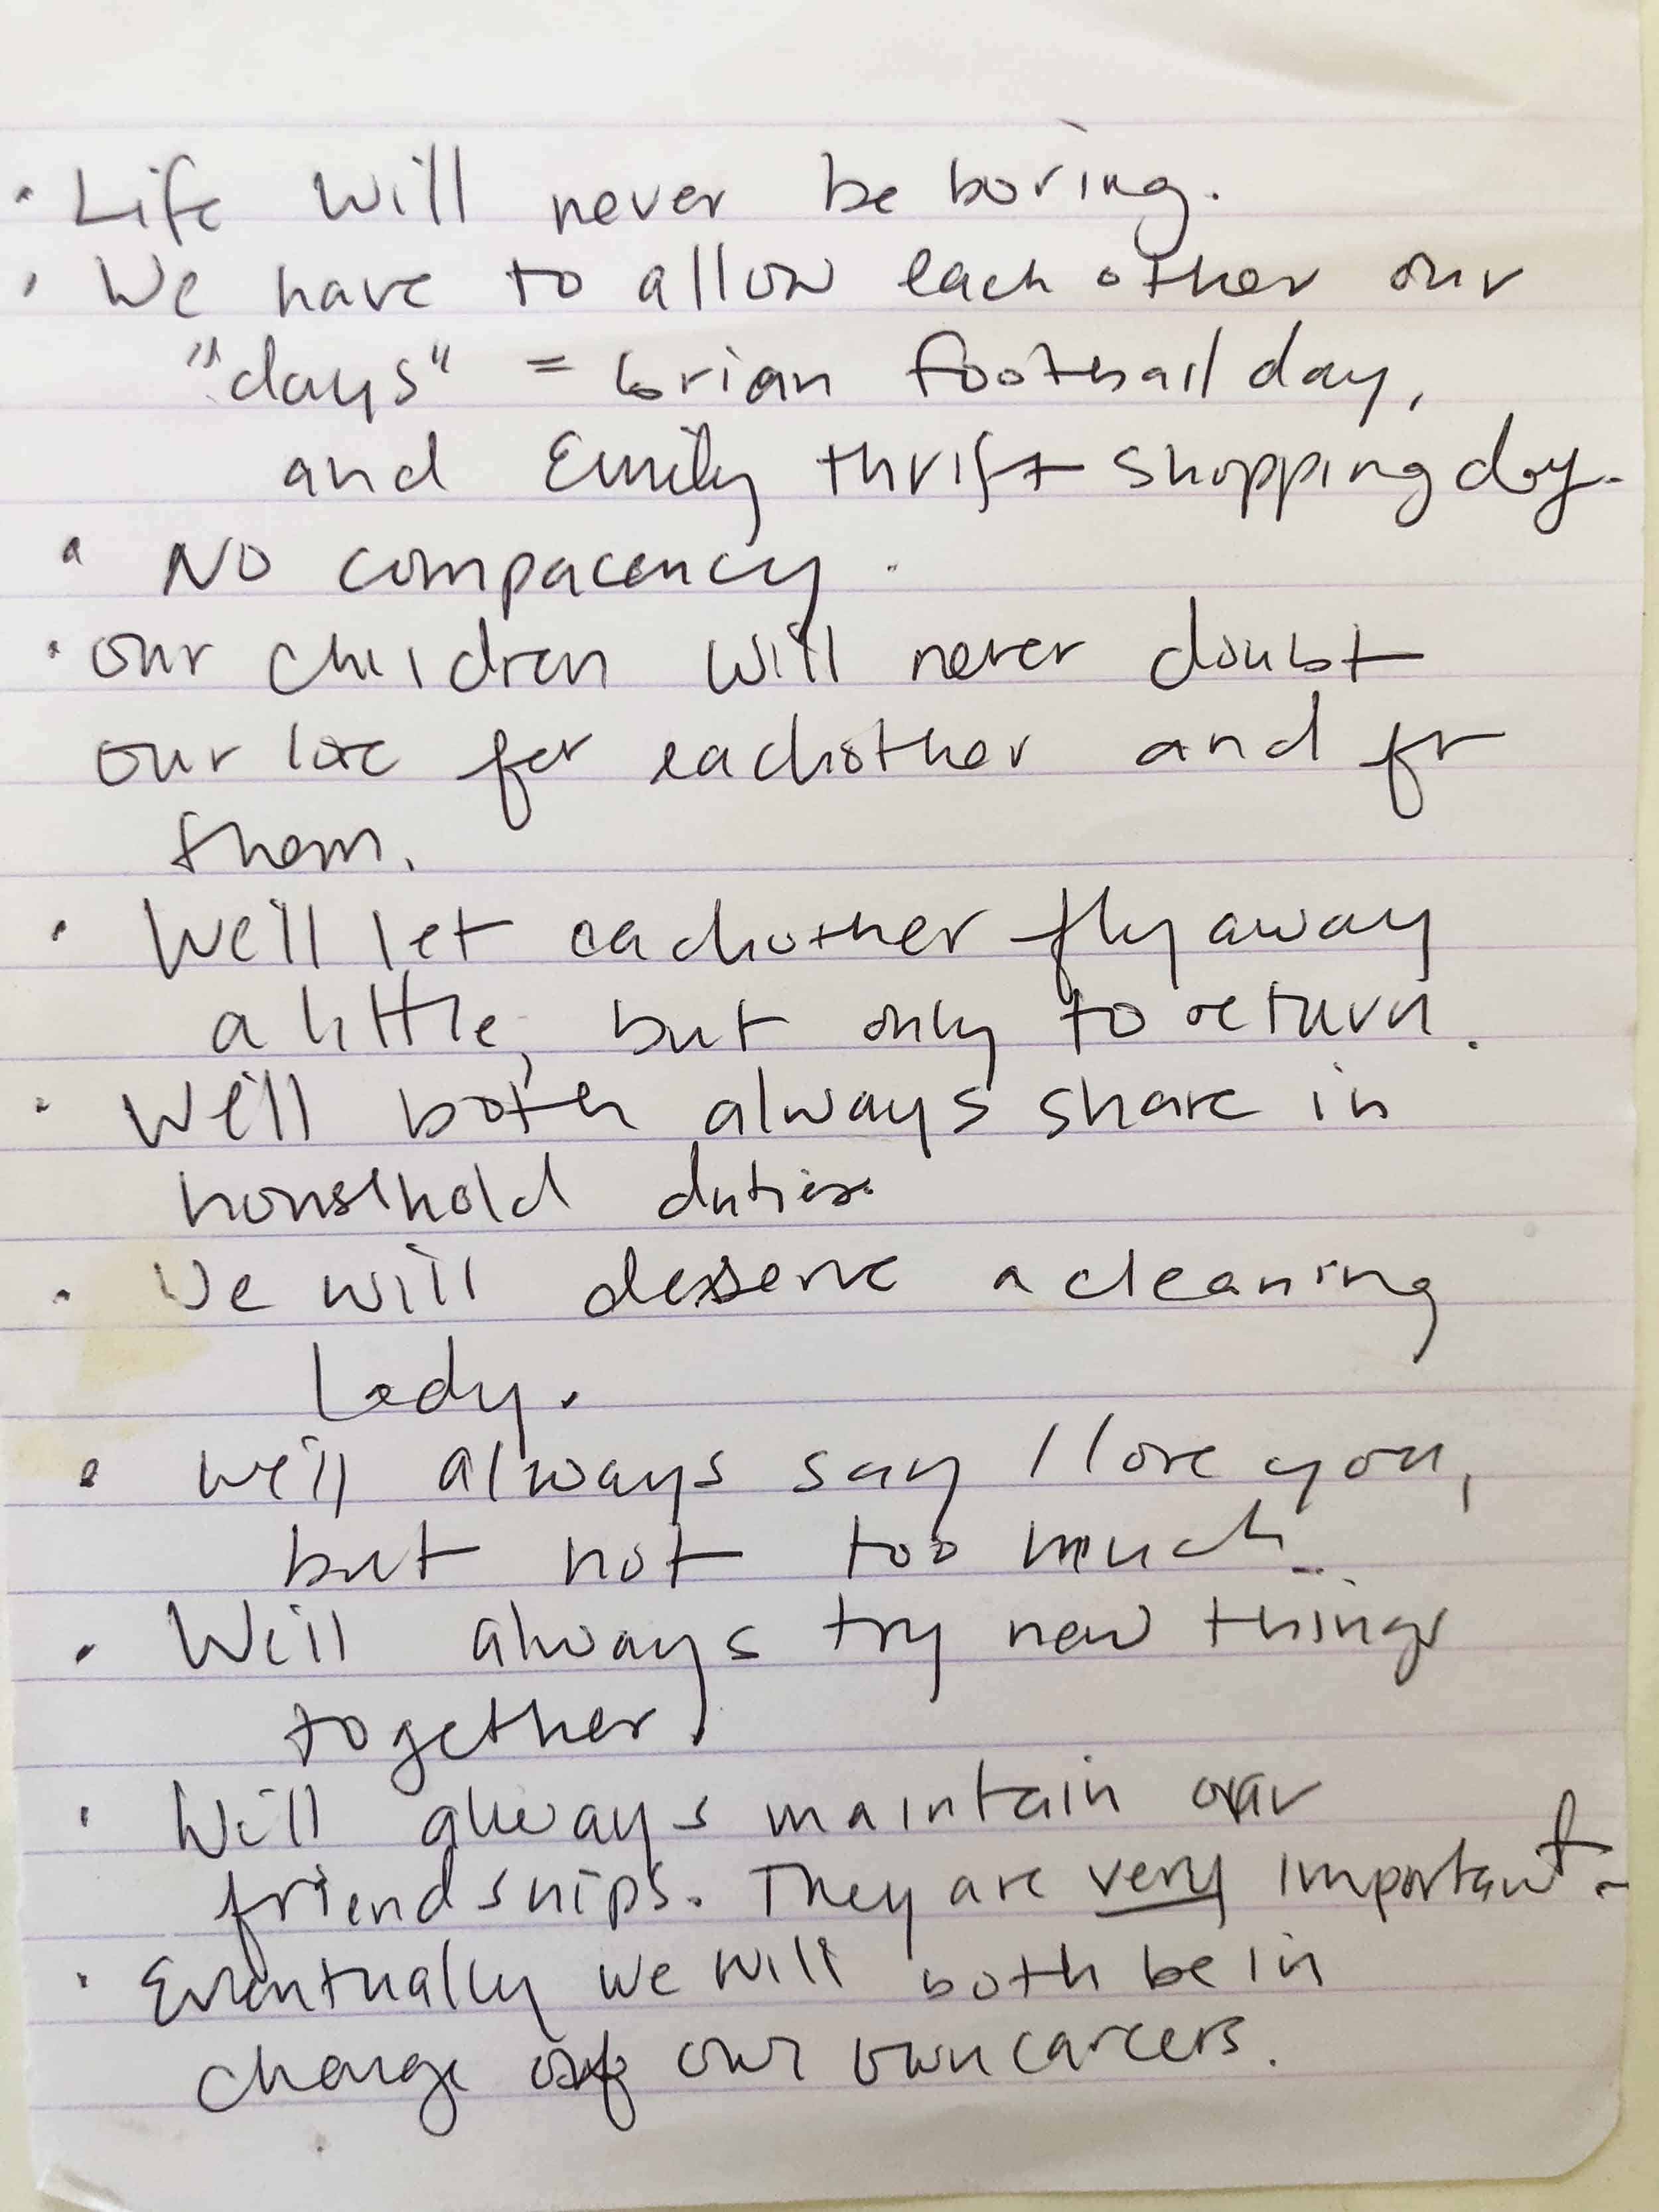 · Life will never be boring.
· We have to allow each other our
"days" = brian football day,
and Emily thrift shopping day.
· NO compacency.
· our children will never doubt
our love for eachother and for
them.
· We'll let eachother fly away
a little, but only to return.
· We'll both always share in
household duties.
· We will deserve a cleaning
Lady.
· we'll always say I love you,
but not too much.
· We'll always try new things
together
· We'll always maintain our
friendships. They are very important.
· Eventually we will both be in
charge of our own careers.